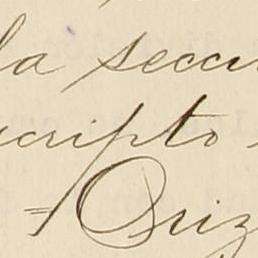 la secci
scripto
= Oriz